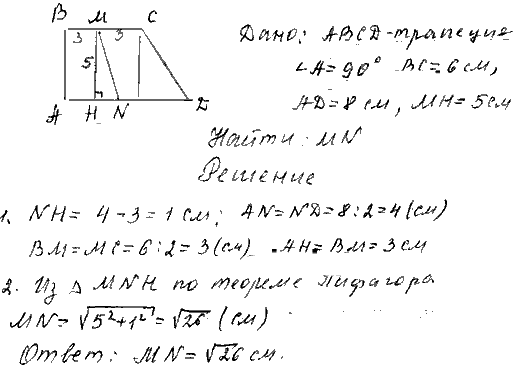 B M C
3 3
5
A H N D
Дано: ABCD-трапеция
∠A = 90° BC = 6 см,
AD = 8 см, MH = 5 см
Найти: MN
Решение
1. NH = 4 - 3 = 1 см; AN = ND = 8 : 2 = 4 (см)
BM = MC = 6 : 2 = 3 (см) . AH = BM = 3 см
2. Из △ MNH по теореме Пифагора
MN = √5²+1² = √26 (см)
Ответ: MN = √26 см.